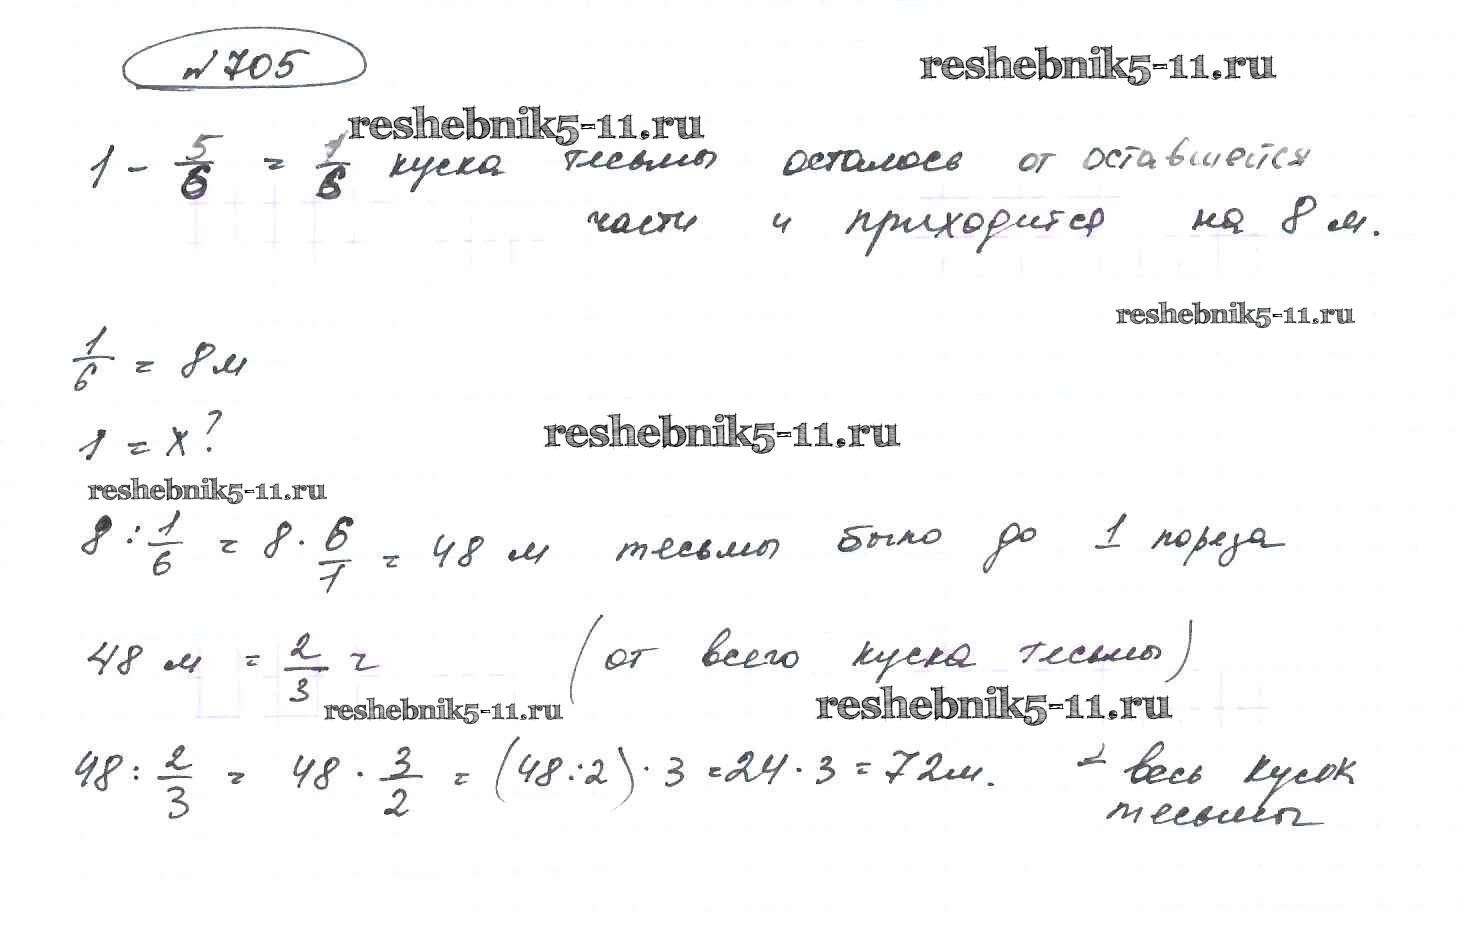 №705
reshebnik5-11.ru
reshebnik5-11.ru
1 - 5/6 = 1/6 куска тесьмы осталось от оставшейся
части и приходится на 8 м.
reshebnik5-11.ru
1/6 = 8м
1 = x?
reshebnik5-11.ru
reshebnik5-11.ru
8 : 1/6 = 8 · 6/1 = 48 м тесьмы было до 1 пореза
48 м = 2/3 ч (от всего куска тесьмы)
reshebnik5-11.ru
reshebnik5-11.ru
48 : 2/3 = 48 · 3/2 = (48:2) · 3 = 24 · 3 = 72м. - весь кусок
тесьмы